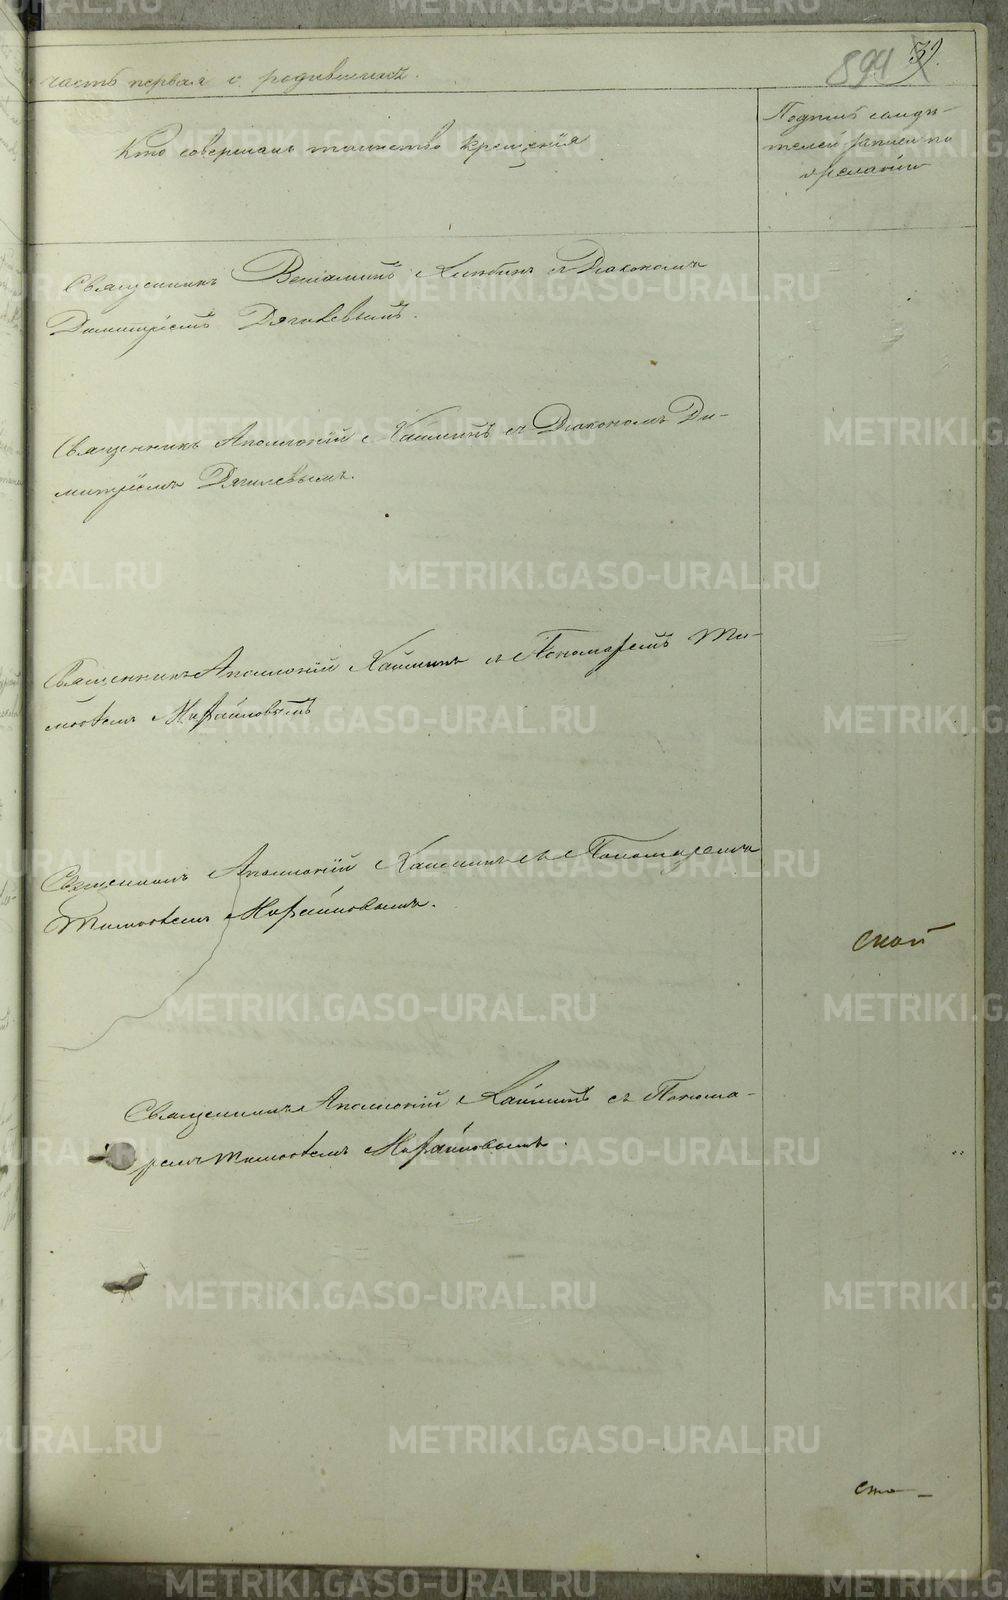 894 39.
часть первая о родившихся.
Кто совершалъ таинство крещенія
Подпись свидѣ-
телей записи по
желанію
Священникъ Веніаминъ съ Діакономъ
Димитріемъ Дягилевымъ.
Священникъ Аполлоній Кашминъ съ Діакономъ Ди-
митріемъ Дягилевымъ.
Священникъ Аполлоній Кашминъ съ Пономаремъ Ти-
моѳеемъ
Священникъ Аполлоній Кашминъ съ Пономаремъ
Тимоѳеемъ
ской
Священникъ Аполлоній Кашминъ съ Понома-
ремъ Тимоѳеемъ
сто
METRIKI.GASO-URAL.RU